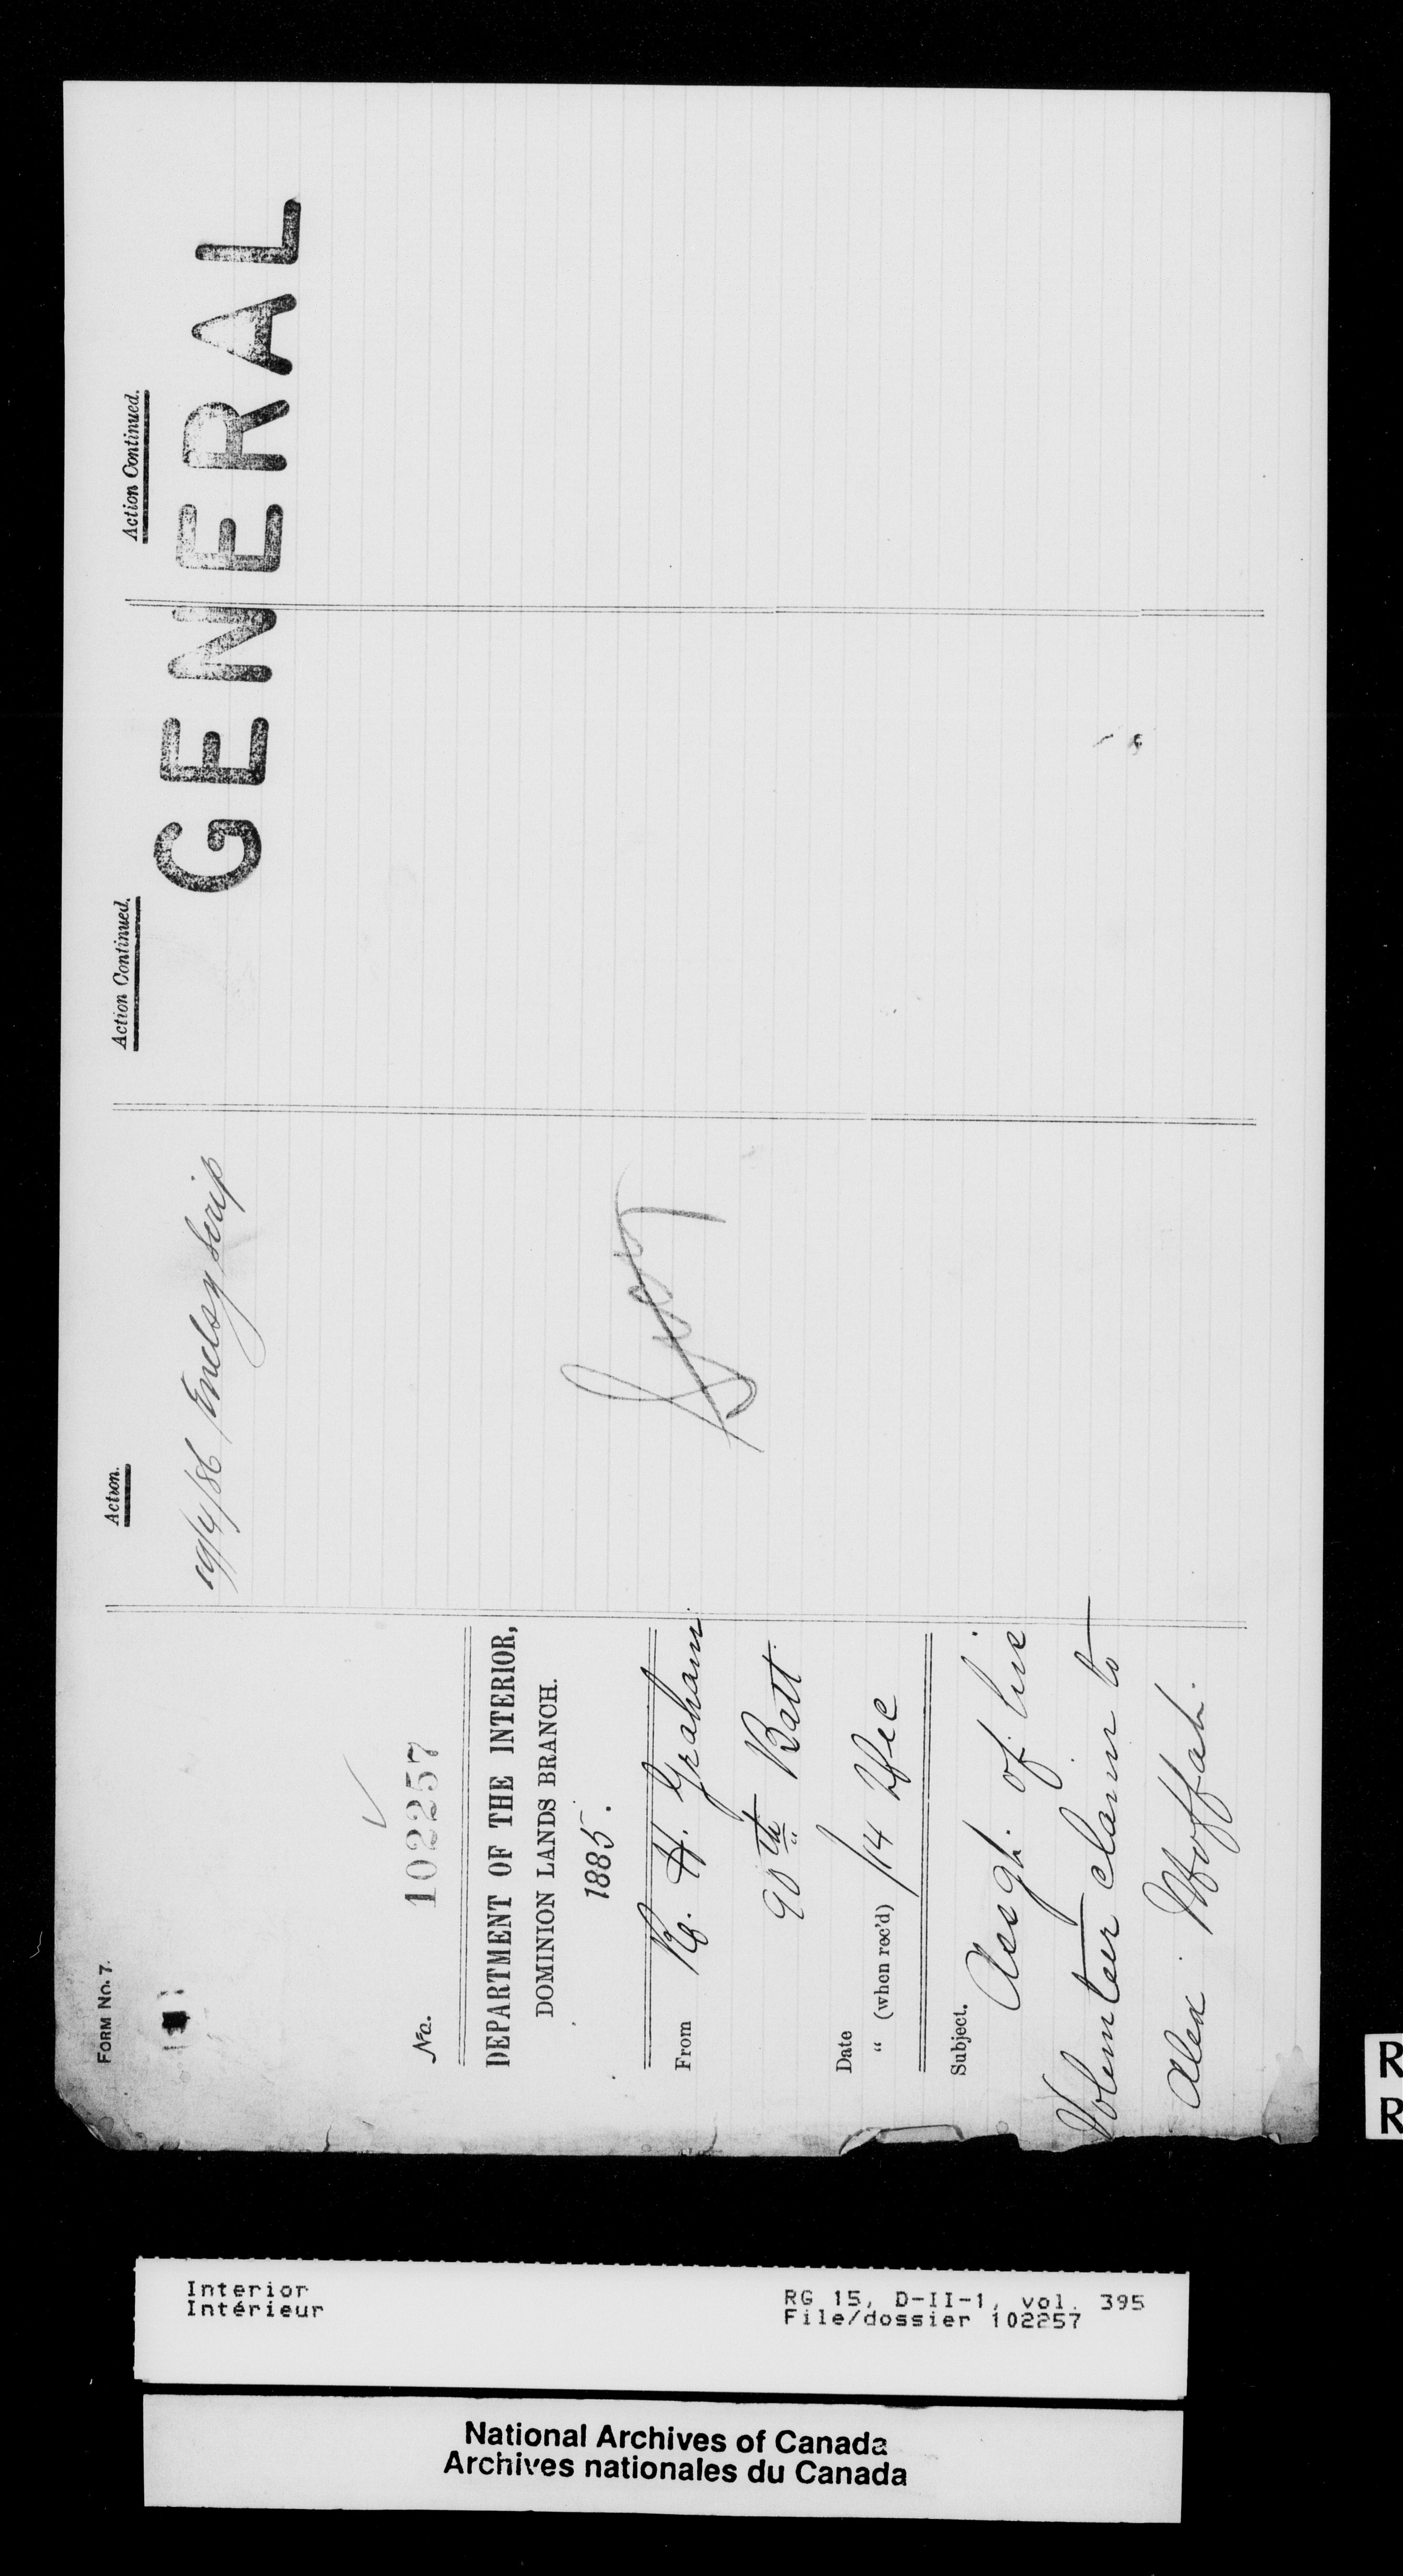 FORM No. 7.
No. 102257
DEPARTMENT OF THE INTERIOR,
DOMINION LANDS BRANCH.
1885.
From R. H. Graham
90th Batt
Date
" (when rec'd) 14 Dec
Subject. Assgt. of his
Volunteer claim to
Alex. Moffatt.
Action.
19/4/86 Enclsg scrip
Action Continued.
Action Continued.
GENERAL
Interior
Intérieur
RG 15, D-II-1, vol. 395
File/dossier 102257
National Archives of Canada
Archives nationales du Canada
R
R